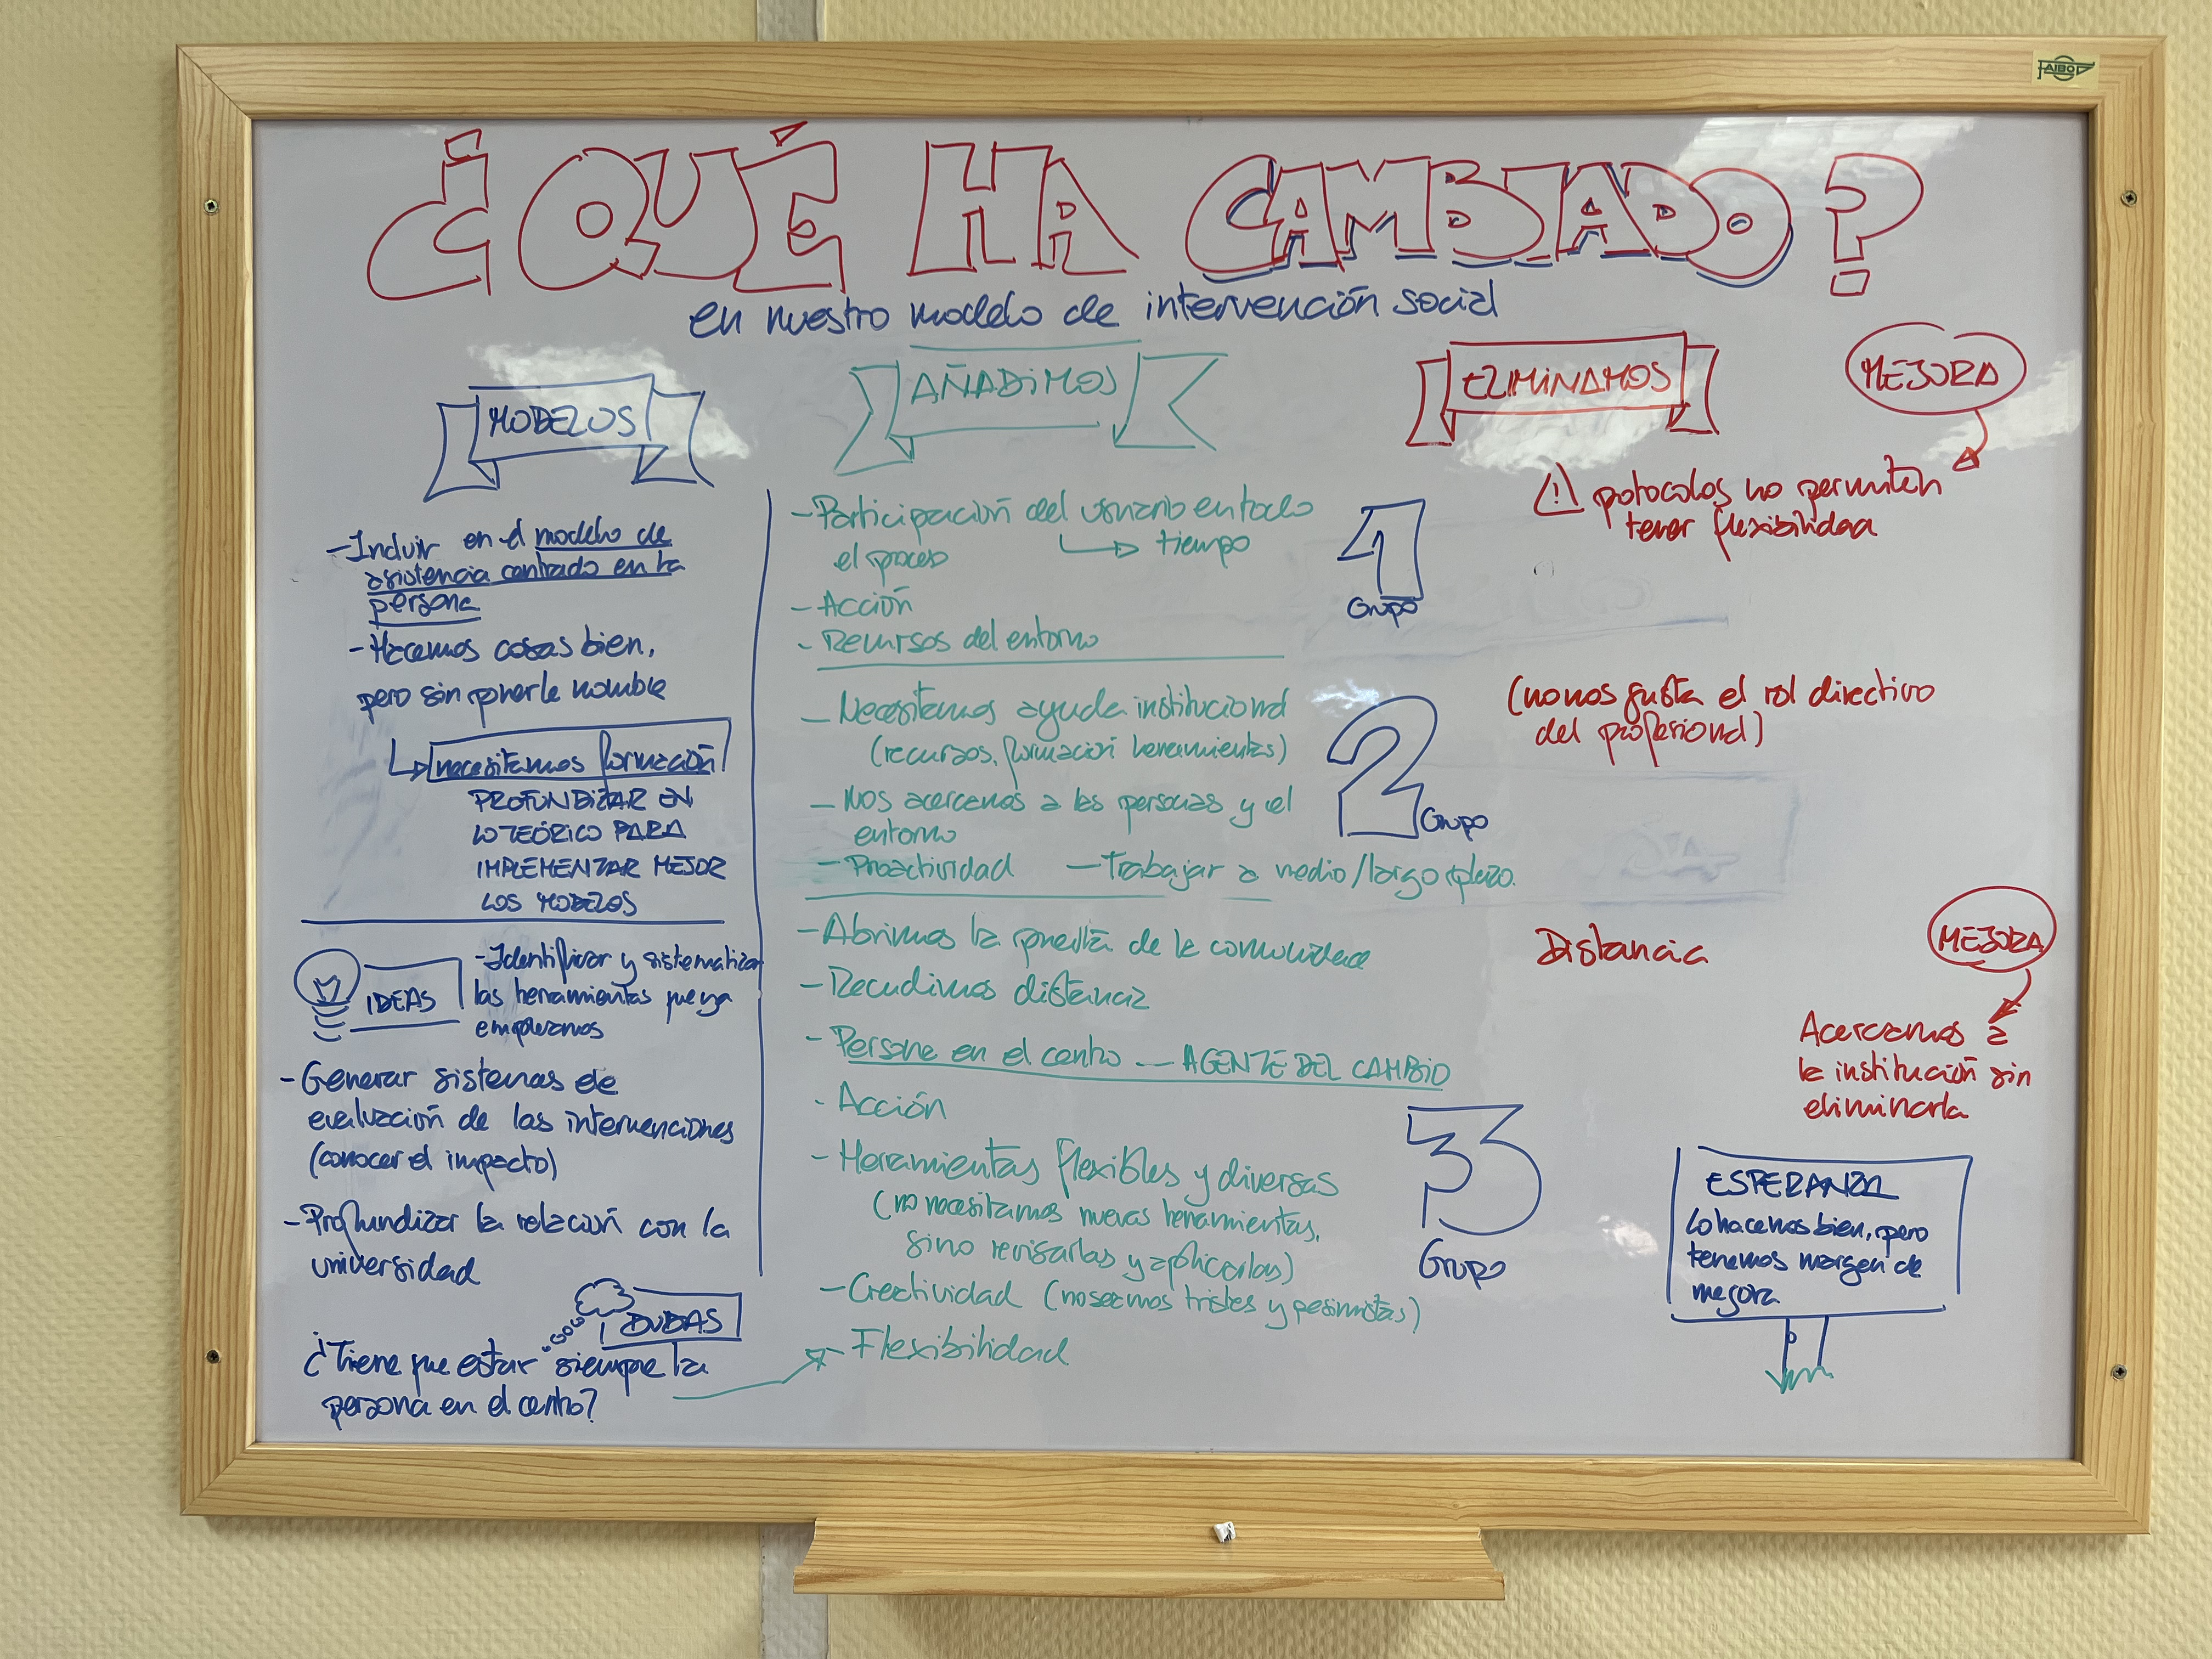 FAIBO
¿QUÉ HA CAMBIADO?
en nuestro modelo de intervención social
MODELOS
- Incluir en el modelo de
asistencia centrado en la
persona
- Hacemos cosas bien,
pero sin ponerle nombre
necesitamos formación
PROFUNDIZAR EN
LO TEÓRICO PARA
IMPLEMENTAR MEJOR
LOS MODELOS
IDEAS
- Identificar y sistematizar
las herramientas que ya
empleamos
- Generar sistemas de
evaluación de las intervenciones
(conocer el impacto)
- Profundizar la relación con la
universidad
DUDAS
¿Tiene que estar siempre la
persona en el centro?
AÑADIMOS
- Participación del usuario en todo
el proceso → tiempo
- Acción
- Recursos del entorno
1
Grupo
- Necesitamos ayuda institucional
(recursos, formación herramientas)
- Nos acercamos a las personas y el
entorno
- Proactividad - Trabajar a medio/largo plazo.
2
Grupo
- Abrimos la puerta de la comunidad
- Recudimos distancia
- Persona en el centro — AGENTE DEL CAMBIO
- Acción
- Herramientas flexibles y diversas
(no necesitamos nuevas herramientas,
sino revisarlas y aplicarlas)
- Creatividad (no seamos tristes y pesimistas)
- Flexibilidad
3
Grupo
ELIMINAMOS
MEJORA
! potocolos no permiten
tener flexibilidad
(no nos gusta el rol directivo
del profesional)
Distancia
MEJORA
Acercarnos a
la institución sin
eliminarla
ESPERANZA
Lo hacemos bien, pero
tenemos margen de
mejora